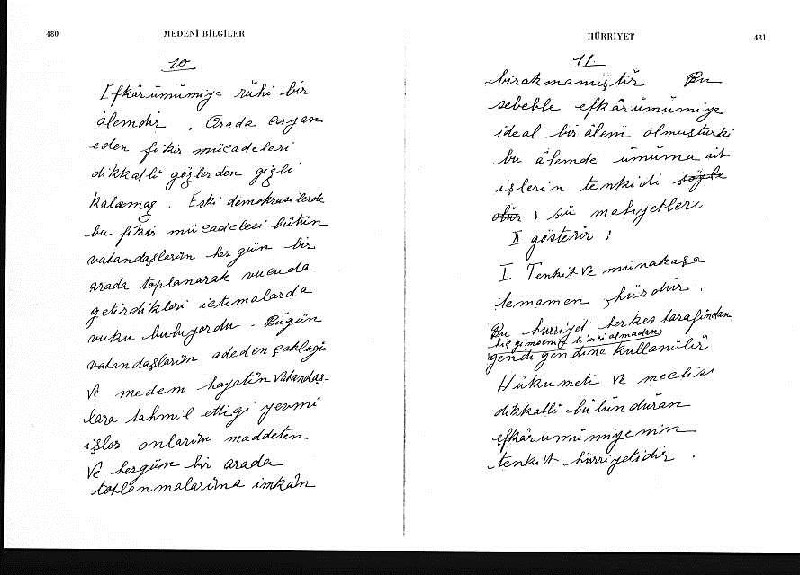 480 MEDENÎ BİLGİLER
10
Efkârıumumiye ruhi bir
âlemdir. Orada cereyan
eden fikir mücadelesi
dikkatli gözlerden gizli
kalamaz. Eski demokrasilerde
bu fikir mücadelesi bütün
vatandaşların her gün bir
arada toplanarak vucuda
getirdikleri içtimalarda
vuku buluyordu. Bugün
vatandaşların adeden çokluğu
ve medeni hayatın vatandaş-
lara tahmil ettiği yevmi
işler onların maddeten
ve hergün bir arada
toplanmalarına imkân
HÜRRİYET 481
11
bırakmamıştır Bu
sebeble efkârıumumiye
ideal bir âlem olmuşturki
bu âlemde umuma ait
işlerin tenkidi şöyle
olur şu mahiyetleri
gösterir:
I. Tenkit ve münakaşa
tamamen hürdür.
Bu hürriyet herkes tarafından
hiç kimsenin olmadan
kendi kendine kullanılır
Hükumeti ve meclisi
dikkatli bulunduran
efkârıumumiyenin
tenkit hürriyetidir.